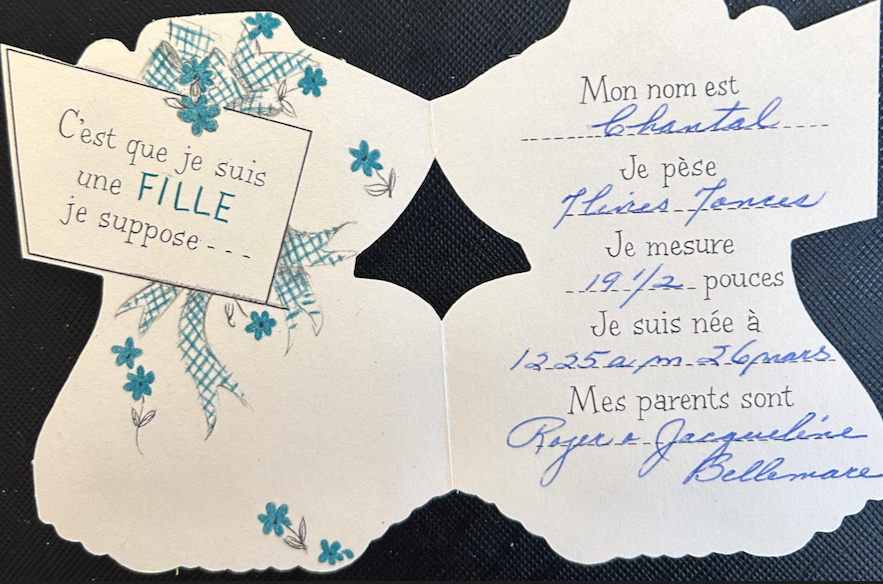 C'est que je suis
une FILLE
je suppose - - -
Mon nom est
Chantal
Je pèse
7 livres 7 onces
Je mesure
19 1/2 pouces
Je suis née à
12 25 a.m 26 mars
Mes parents sont
Roger & Jacqueline
Bellemare